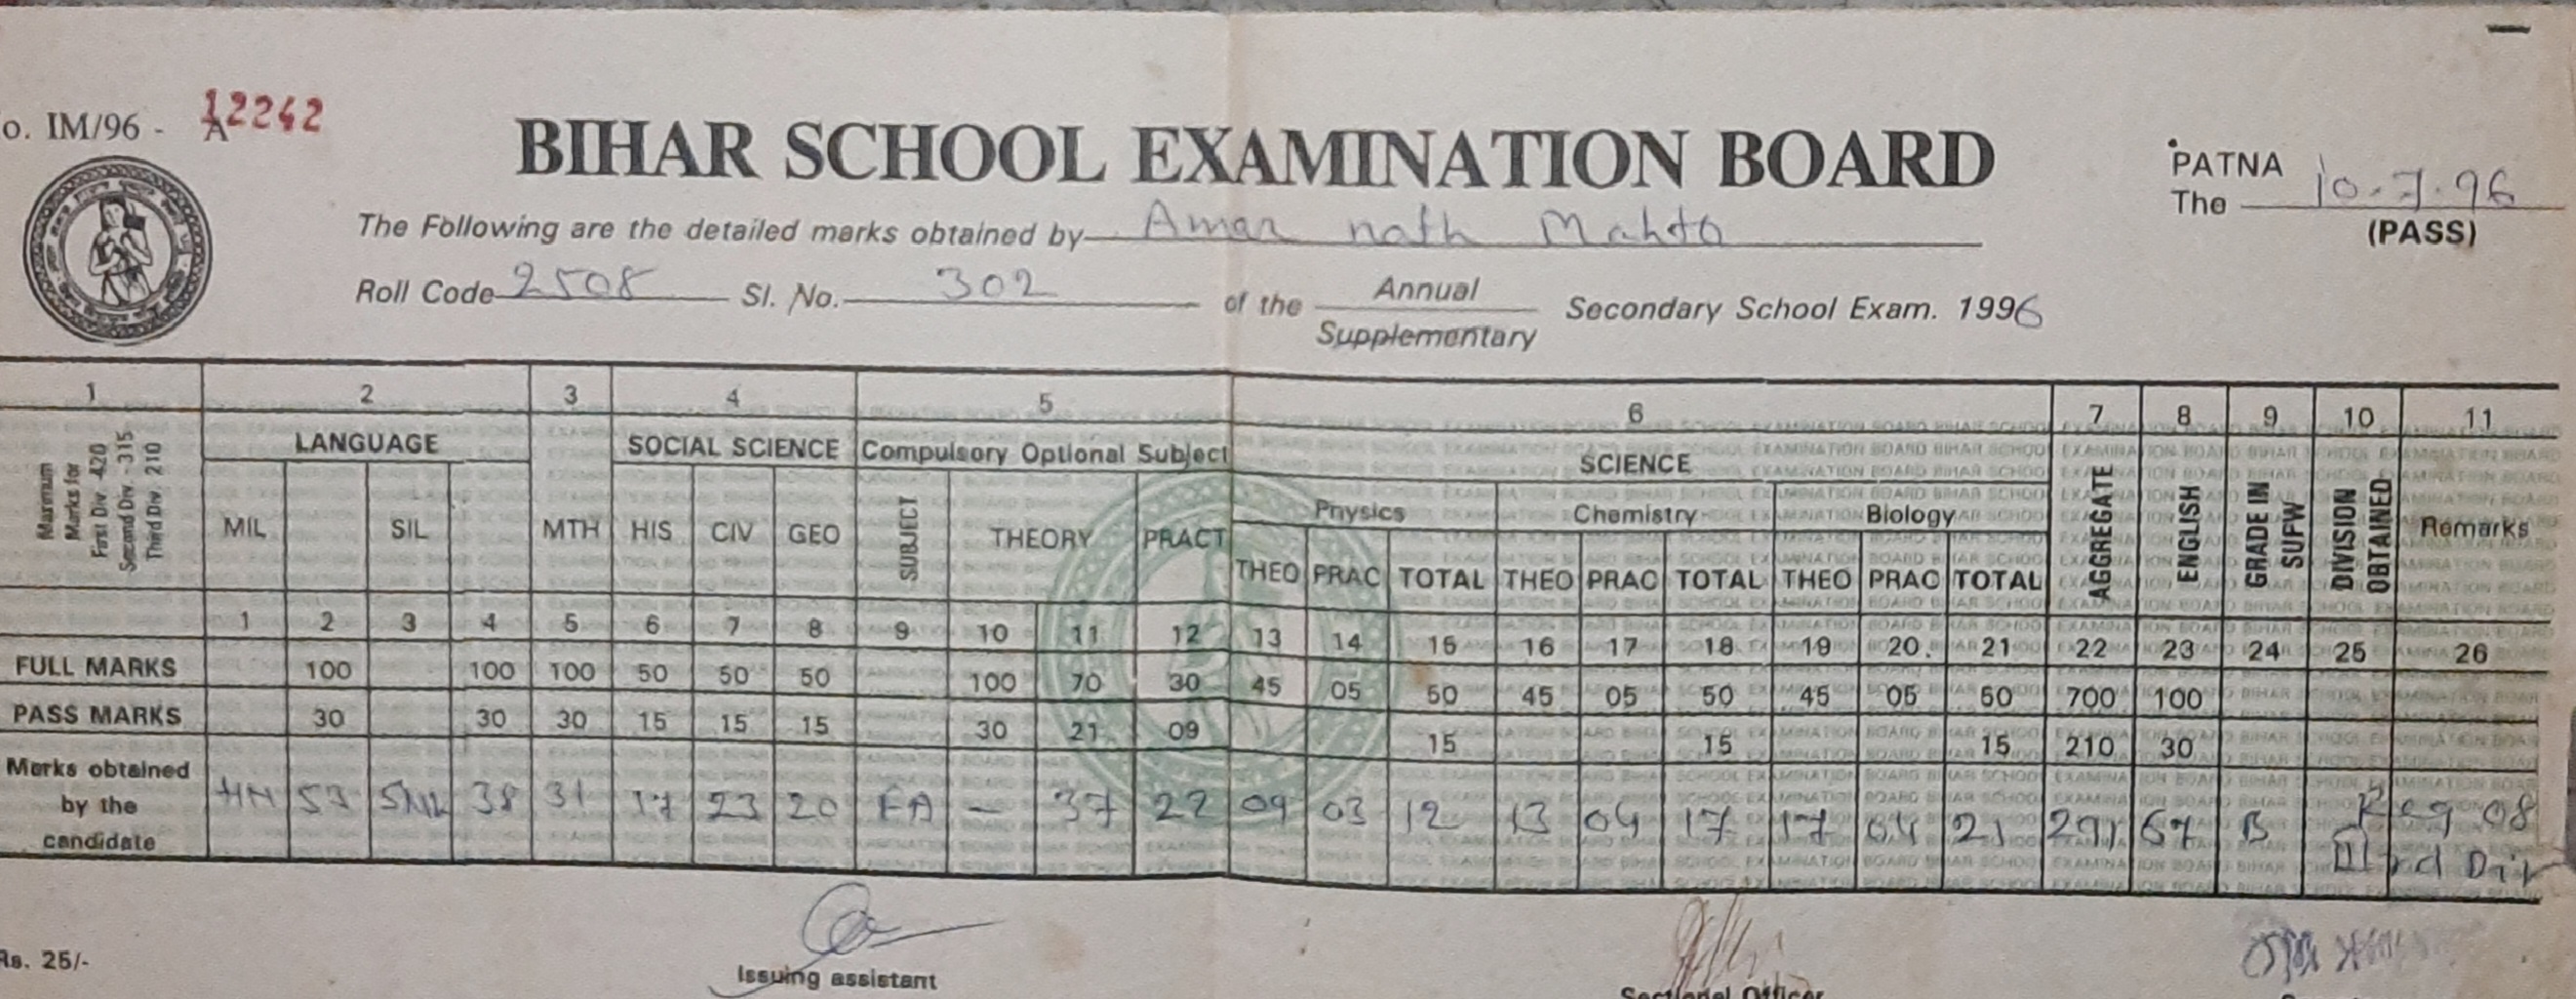 o. IM/96 - A 12262
BIHAR SCHOOL EXAMINATION BOARD
PATNA
The 10.7.96
(PASS)
The Following are the detailed marks obtained by Amar nath Mahto
Roll Code 2508 Sl. No. 302 of the Annual Supplementary Secondary School Exam. 1996
1 2 3 4 5 6 7 8 9 10 11
Maximum Marks for First Div. 420 Second Div. - 315 Third Div. 210
LANGUAGE SOCIAL SCIENCE Compulsory Optional Subject SCIENCE
Physics Chemistry Biology
MIL SIL MTH HIS CIV GEO SUBJECT THEORY PRACT THEO PRAC TOTAL THEO PRAC TOTAL THEO PRAC TOTAL AGGREGATE ENGLISH GRADE IN SUPW DIVISION OBTAINED Remarks
1 2 3 4 5 6 7 8 9 10 11 12 13 14 15 16 17 18 19 20. 21 22 23 24 25 26
FULL MARKS 100 100 100 50 50 50 100 70 30 45 05 50 45 05 50 45 05 50 700 100
PASS MARKS 30 30 30 15 15 15 30 21 09 15 15 15 210 30
Marks obtained by the candidate HN 53 38 31 17 23 20 EA - 37 22 09 03 12 13 04 17 17 04 21 291 67 B Reg 08
IIIrd Div
Rs. 25/-
Issuing assistant
Sectional Officer